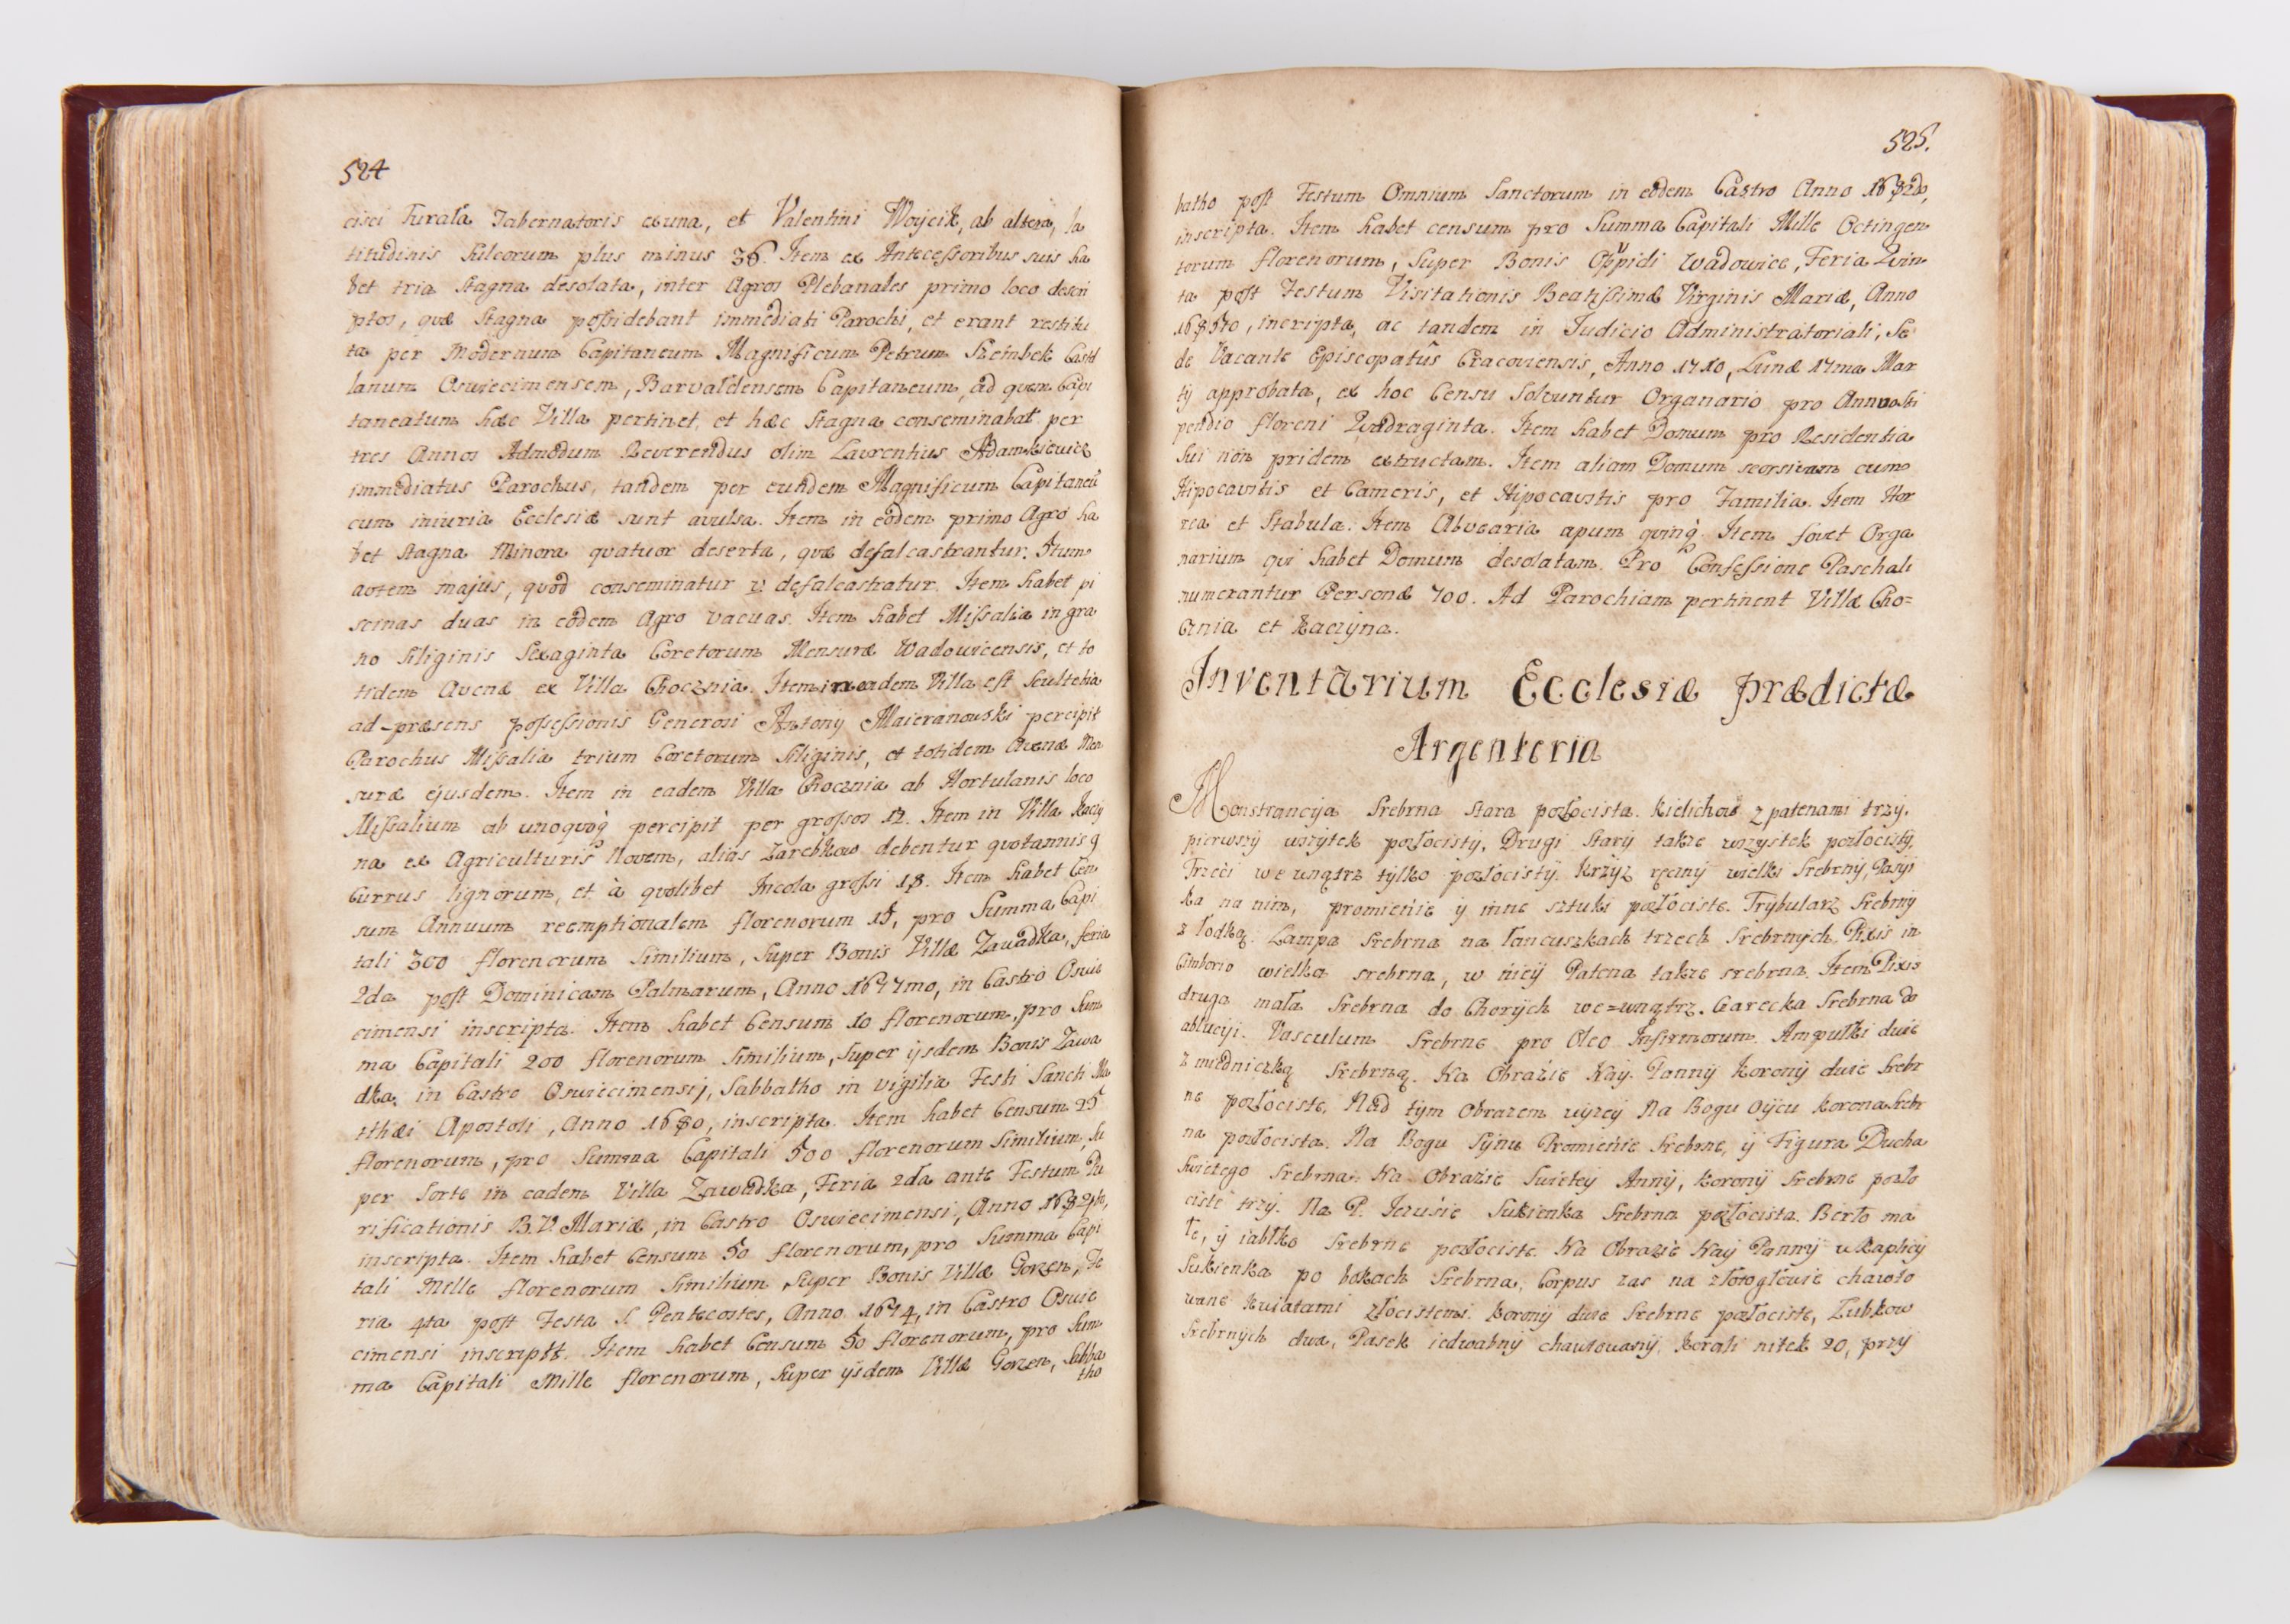 524
cisci Furała Tabernatoris ex una, et Valentini Woycik, ab altera, la
titudinis Sulcorum plus minus 36. Item ex Antecessoribus suis ha
bet tria Stagna desolata, inter Agros Plebanales primo loco descri
ptos, quæ Stagna possidebant immediati Parochi, et erant restitu
ta per Modernum Capitaneum Magnificum Petrum Szembek Castel
lanum Oswiecimensem, Barvaldensem Capitaneum, ad quem Capi
taneatum hæc Villa pertinet, et hæc Stagna conseminabat per
tres Annos Admodum Reverendus olim Laurentius Adamkiewicz
immediatus Parochus, tandem per eundem Magnificum Capitaneũ
cum iniuria Ecclesiæ sunt avulsa. Item in eodem primo Agro ha
bet Stagna Minora quatuor deserta, quæ defalcastrantur.
autem majus, quod conseminatur defalcastratur. Item habet pi
scinas duas in eodem Agro vacuas. Item habet Missalia in gra
no Siliginis Sexaginta Coretorum Mensuræ Wadovicensis, et to
tidem Avenæ ex Villa Chocznia. Item in eadem Villa est Scultetia
ad præsens possessionis Generosi Antonij Maieranowski percipit
Parochus Missalia trium Coretorum Siliginis, et totidem Avenæ Men
suræ ejusdem. Item in eadem Villa Chocznia ab Hortulanis loco
Missalium ab unoquoq percipit per grossos 12. Item in Villa Kaczy
na ex Agriculturis Novem, alias Zarebkow debentur quotannis 9
Currus lignorum, et à quolibet Incola grossi 18. Item habet Cen
sum Annuum reemptionalem florenorum 15, pro Summa Capi
tali 300 florenorum similium, Super Bonis Villæ Zawadka, feria
2da post Dominicam Palmarum, Anno 1677mo, in Castro Oswie
cimensi inscripta. Item habet Censum 10 florenorum, pro Sum
ma Capitali 200 florenorum Similium, Super ijsdem Bonis Zawa
dka, in Castro Oswiecimensij, Sabbatho in vigilia Festi Sancti Ma
tthæi Apostoli, Anno 1680, inscripta. Item habet Censum 25
florenorum, pro Summa Capitali 500 florenorum Similium, Su
per Sorte in eadem Villa Zawadka, Feria 2da ante Festum Pu
rificationis B.V. Mariæ, in Castro Oswiecimensi, Anno
inscripta. Item habet Censum 50 florenorum, pro Summa Capi
tali Mille florenorum Similium, Super Bonis Villæ Gorzen, Fe
ria 4ta post Festa S. Pentecostes, Anno 1674, in Castro Oswie
cimensi inscripta. Item habet Censum 50 florenorum, pro Sum
ma Capitali Mille florenorum, Super ijsdem Villæ Gorzen, Sabba
tho
525.
batho post Festum Omnium Sanctorum in eodem Castro Anno 1682do,
inscripta. Item habet censum pro Summa Capitali Mille Octingen
torum florenorum, Super Bonis Oppidi Wadowice, Feria Quin
ta post Festum Visitationis Beatissimæ Virginis Mariæ, Anno
inscripta, ac tandem in Judicio Administratoriali, Se
de Vacante Episcopatûs Cracoviensis, Anno 1710, Lunæ 17ma Mar
tij approbata, ex hoc Censu Solvuntur Organario pro Annuo sti
pendio floreni Quadraginta. Item habet Domum pro Residentia
sui non pridem extructam. Item aliam Domum seorsivam cum
Hipocaustis et Cameris, et Hipocaustis pro Familia. Item Hor
rea et Stabula. Item Alvearia apum quinq. Item fovet Orga
narium qui habet Domum desolatam. Pro Confessione Paschali
numerantur Personæ 700. Ad Parochiam pertinent Villæ Cho=
cznia et Kaczyna.
Inventarium Ecclesiæ prædictæ
Argenteria
Monstrancija Srebrna stara pozłocista. Kielichow z patenami trzy.
pierwszy wszytek pozłocisty, Drugi stary takze wszystek pozłocisty,
Trzeci we wnątrz tylko pozłocisty. Krzyz ręczny wielki Srebrny, Pasyi
ka na nim, promienie y inne sztuki pozłociste. Trybularz Srebrny
z łodką. Lampa Srebrna na łancuszkach trzech Srebrnych. Pixis in
Cimborio wielka srebrna, w niey Patena takze srebrna. Item Pixis
druga mała Srebrna do Chorych we=wnątrz. Czarecka Srebrna do
ablucyi. Vasculum Srebrne pro Oleo Infirmorum. Ampułki dwie
z miedniczką Srebrną. Na Obrazie Nay. Panny Korony dwie Srebr
ne pozłociste, Nad tym Obrazem wyzey Na Bogu Oycu korona Srebr
na pozłocista. Na Bogu Synu Promienie Srebrne, y Figura Ducha
Swietego Srebrna. Na Obrazie Swietey Anny, korony Srebrne pozło
ciste trzy. Na P. Jezusie Sukienka Srebrna pozłocista. Berło ma
łe, y iabłko Srebrne pozłociste. Na Obrazie Nay Panny w Kaplicy
Sukienka po bokach Srebrna, Corpus zas na złotogłowie chawto
wane kwiatami złocistemi. Korony dwie Srebrne pozłociste, Ząbkow
Srebrnych dwa, Pasek iedwabny chawtowany, korali nitek 20, przy